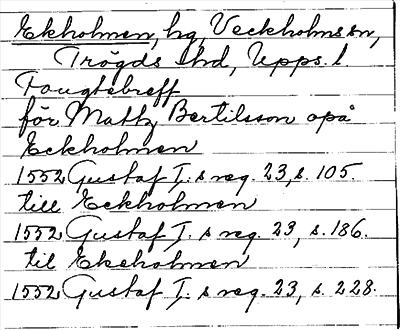 Ekholmen, hg, Veckholms sn,
Trögds hd, Upps. l
Fougtebreff
för Mattz Bertilsson opå
Eckholmen
1552 Gustaf I. s reg. 23, s. 105.
till Eckholmen
1552 Gustaf I. s reg. 23, s. 186.
til Ekeholmen
1552 Gustaf I. s reg. 23, s. 228.